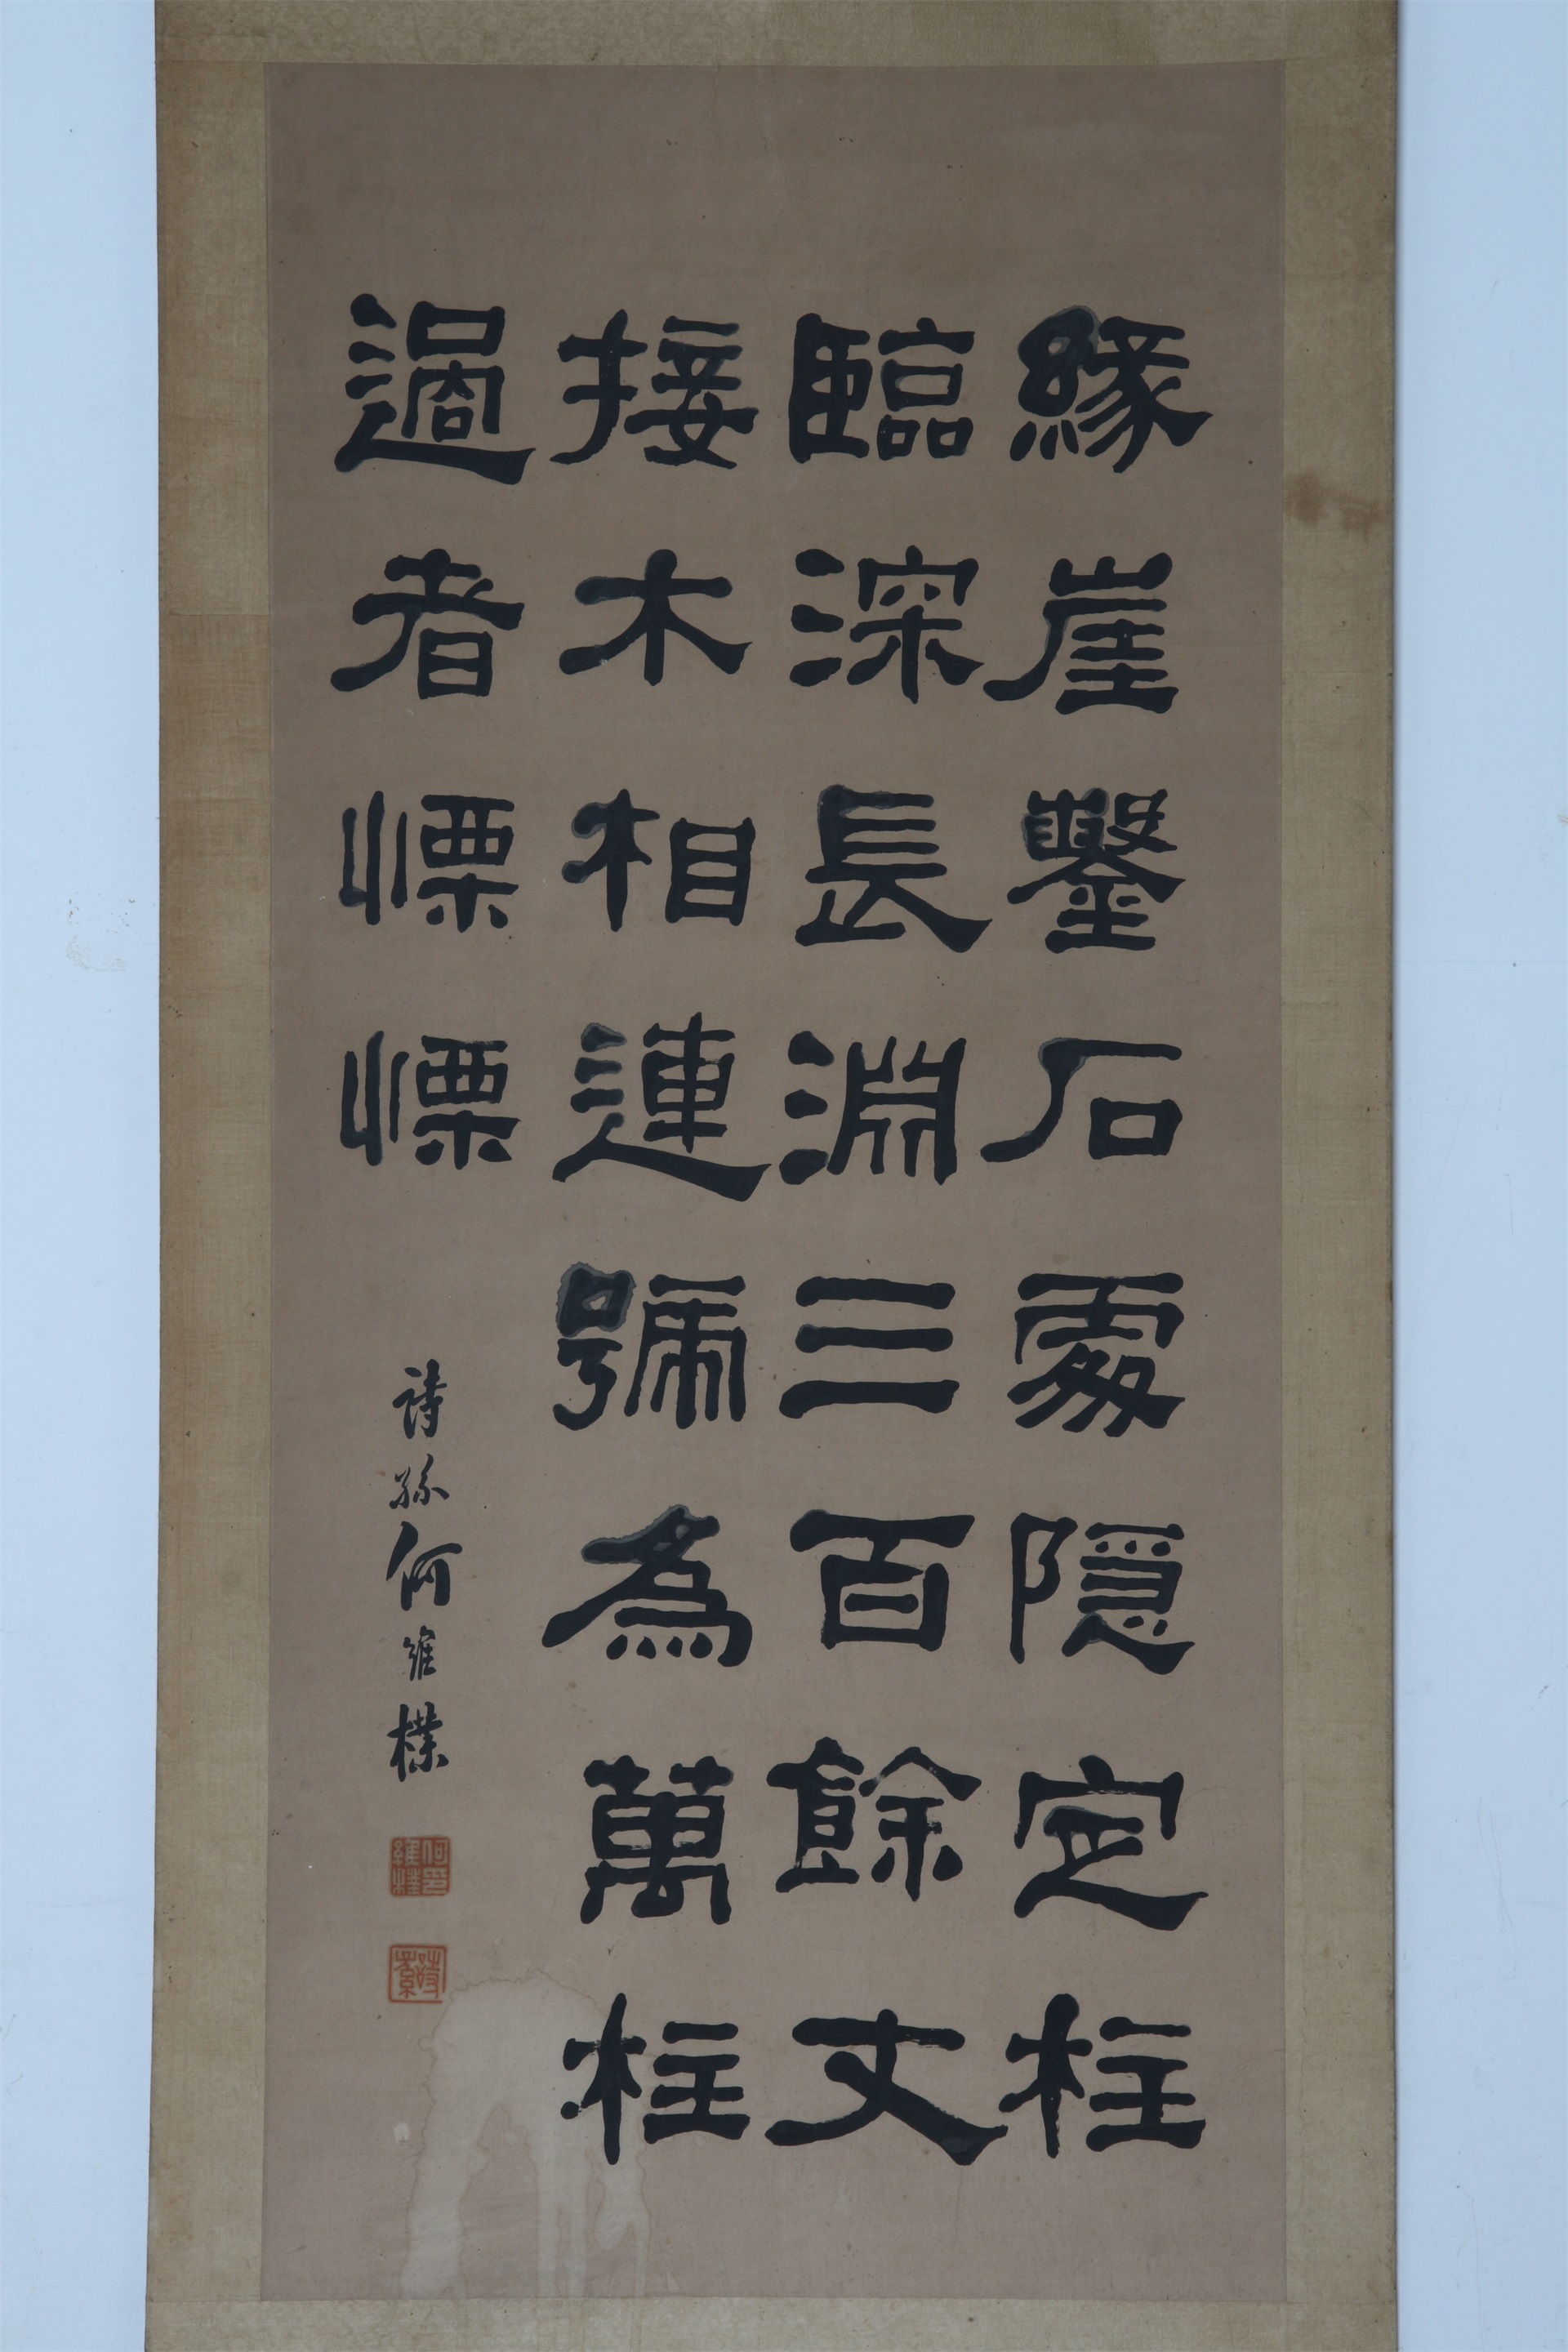 緣崖鑿石處隱定柱
臨深長淵三百餘丈
接木相連號為萬柱
過者慄慄
詩孫何維樸
何維樸印
詩孫